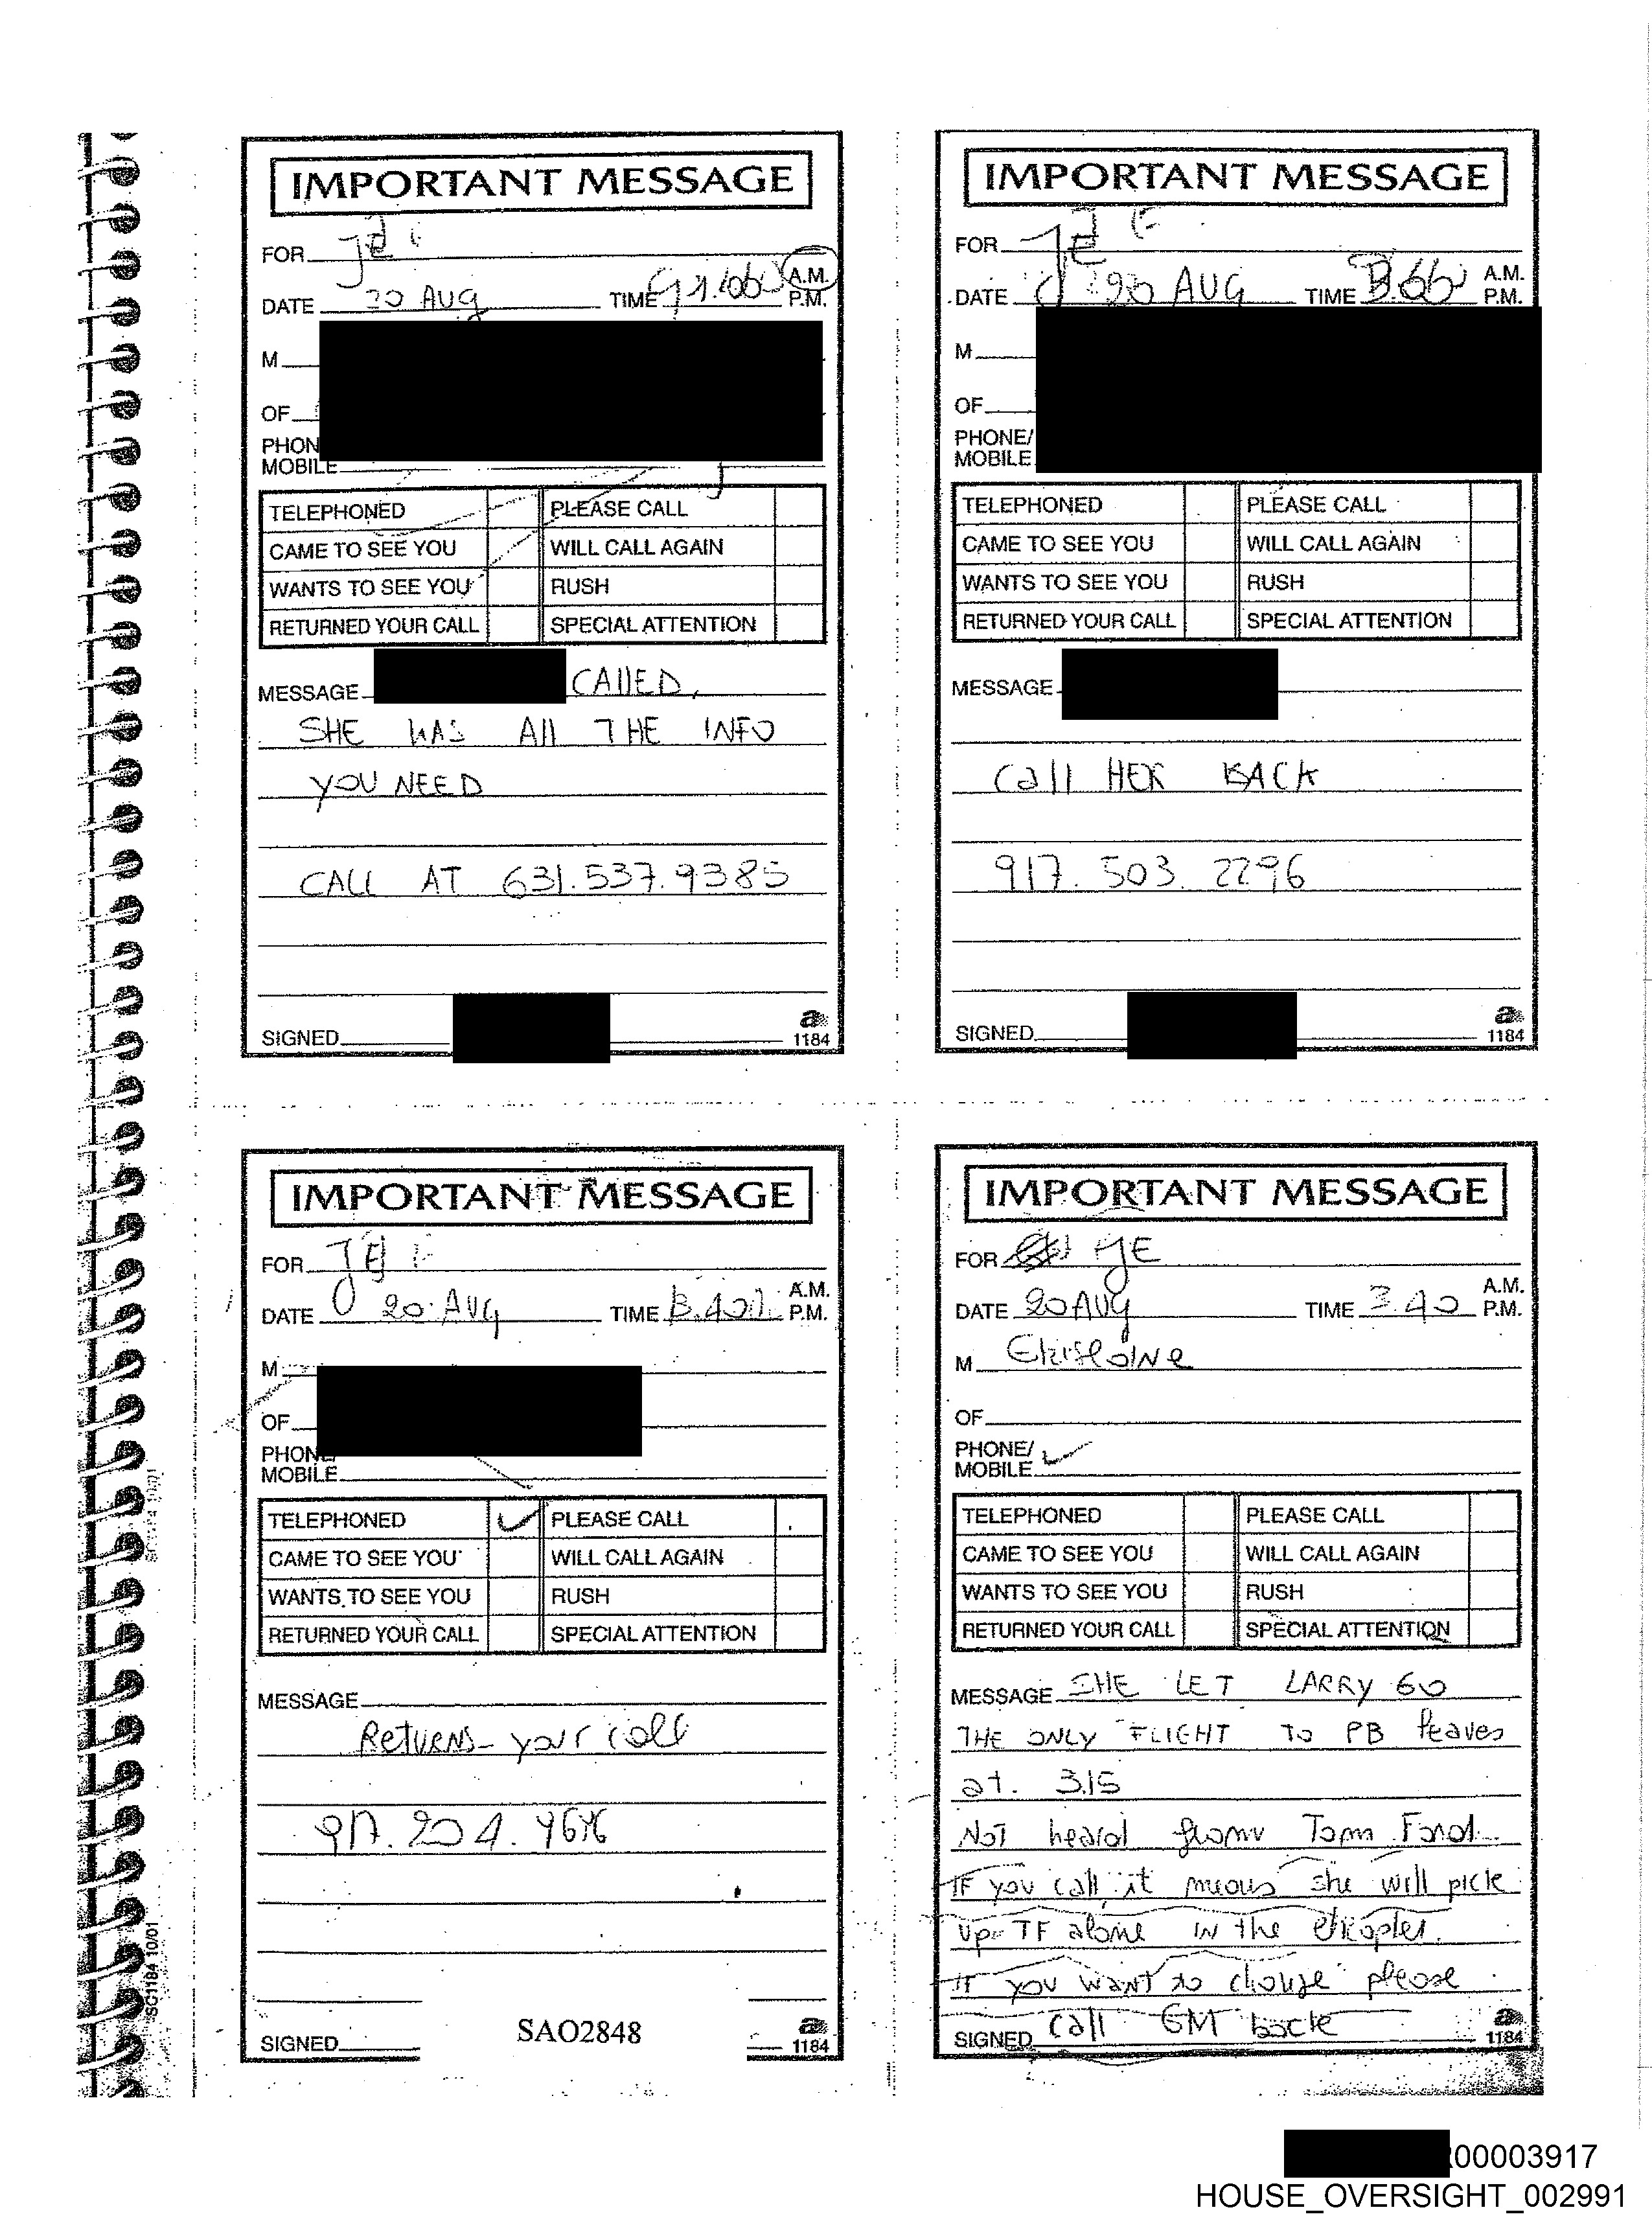 IMPORTANT MESSAGE
FOR JE
DATE 20 AUG TIME A.M. P.M.
M
OF
PHON
MOBILE
TELEPHONED PLEASE CALL
CAME TO SEE YOU WILL CALL AGAIN
WANTS TO SEE YOU RUSH
RETURNED YOUR CALL SPECIAL ATTENTION
MESSAGE CAllED,
SHE HAS All THE INFO
YOU NEED
CALL AT 631.537.9385
SIGNED
a
1184
IMPORTANT MESSAGE
FOR JE
DATE 20 AUG TIME A.M. P.M.
M
OF
PHONE/
MOBILE
TELEPHONED PLEASE CALL
CAME TO SEE YOU WILL CALL AGAIN
WANTS TO SEE YOU RUSH
RETURNED YOUR CALL SPECIAL ATTENTION
MESSAGE
Call HER BACK
917. 503. 2296
SIGNED
a
1184
IMPORTANT MESSAGE
FOR JE
DATE 20 AUG TIME A.M. P.M.
M
OF
PHONE/
MOBILE
TELEPHONED ✓ PLEASE CALL
CAME TO SEE YOU WILL CALL AGAIN
WANTS TO SEE YOU RUSH
RETURNED YOUR CALL SPECIAL ATTENTION
MESSAGE
Returns your call
917. 204.
SIGNED
SAO2848
a
1184
SC1184 10/01
IMPORTANT MESSAGE
FOR JE
DATE 20 AUG TIME 3.40 A.M. P.M.
M
OF
PHONE/
MOBILE ✓
TELEPHONED PLEASE CALL
CAME TO SEE YOU WILL CALL AGAIN
WANTS TO SEE YOU RUSH
RETURNED YOUR CALL SPECIAL ATTENTION
MESSAGE SHE LET LARRY GO
THE ONLY FLIGHT TO PB leaves
at. 3.15
NOT heard from Tom Ford.
IF you call it means she will pick
up TF alone IN the
IF you want to change please
SIGNED call GM back
a
1184
00003917
HOUSE_OVERSIGHT_002991